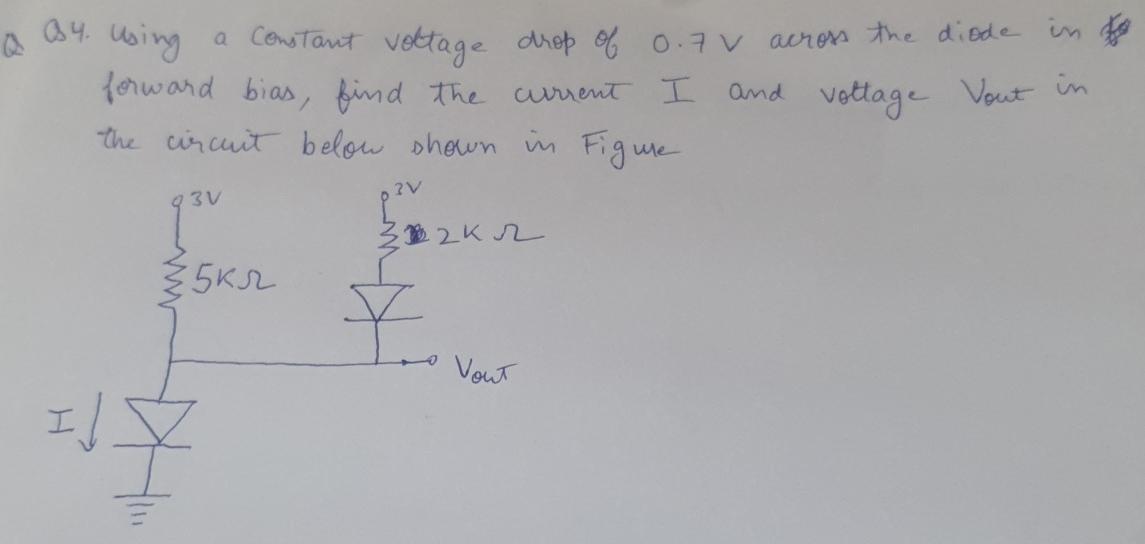 Q Q4. Using a constant voltage drop of 0.7 V across the diode in
forward bias, find the current I and voltage Vout in
the circuit below shown in Figure
3V
3V
2K Ω
5KΩ
Vout
I